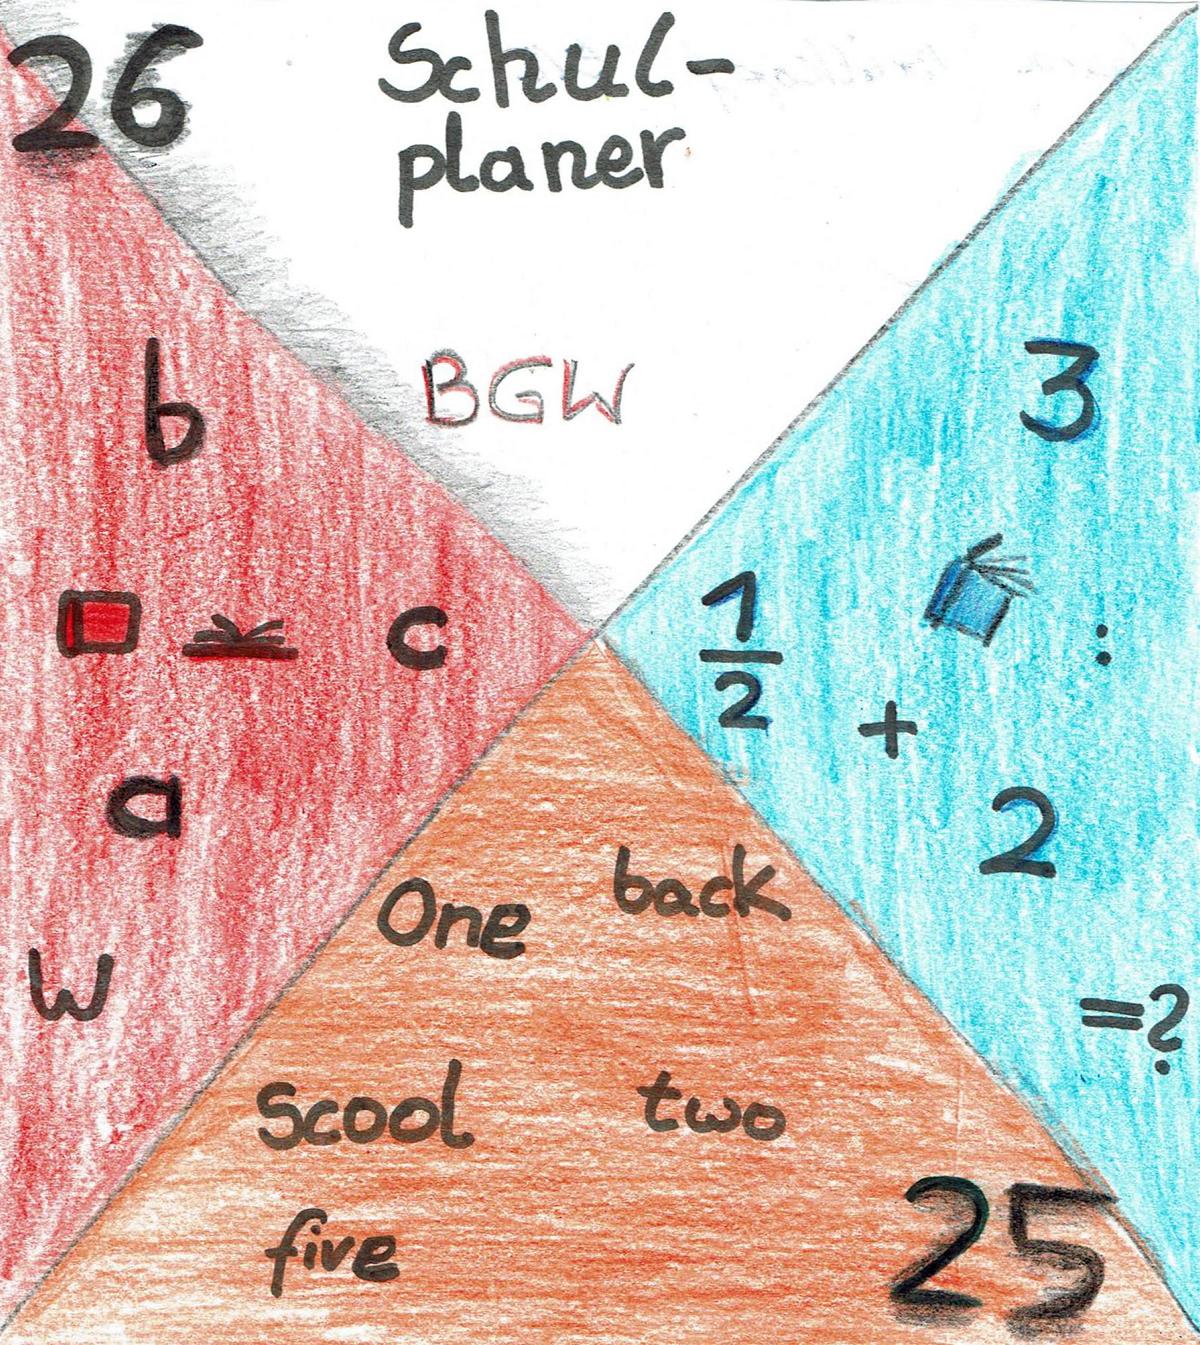 26
Schul-
planer
BGW
b
c
a
w
3
1
2
:
+
2
=?
One back
Scool two
five
25